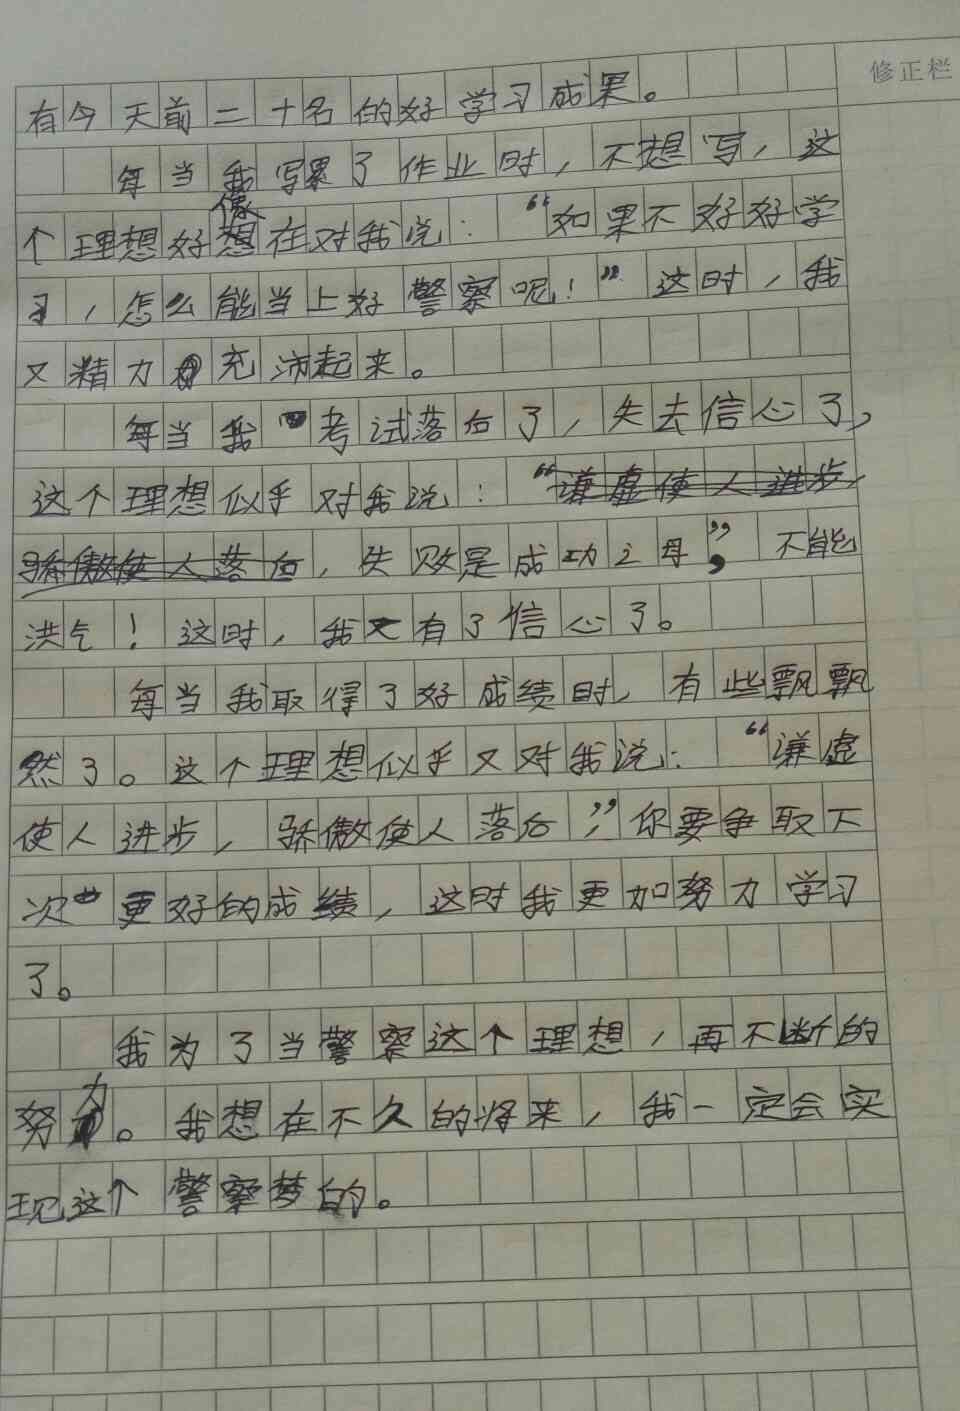 修正栏
有今天前二十名的好学习成果。
每当我写累了作业时，不想写，这
个理想好像在对我说：“如果不好好学
习，怎么能当上好警察呢！”这时，我
又精力充沛起来。
每当我考试落后了，失去信心了，
这个理想似乎对我说：“谦虚使人进步，
骄傲使人落后，失败是成功之母”，不能
洪气！这时，我又有了信心了。
每当我取得了好成绩时，有些飘飘
然了。这个理想似乎又对我说：“谦虚
使人进步，骄傲使人落后”，你要争取下
次更好的成绩，这时我更加努力学习
了。
我为了当警察这个理想，再不断的
努力。我想在不久的将来，我一定会实
现这个警察梦的。